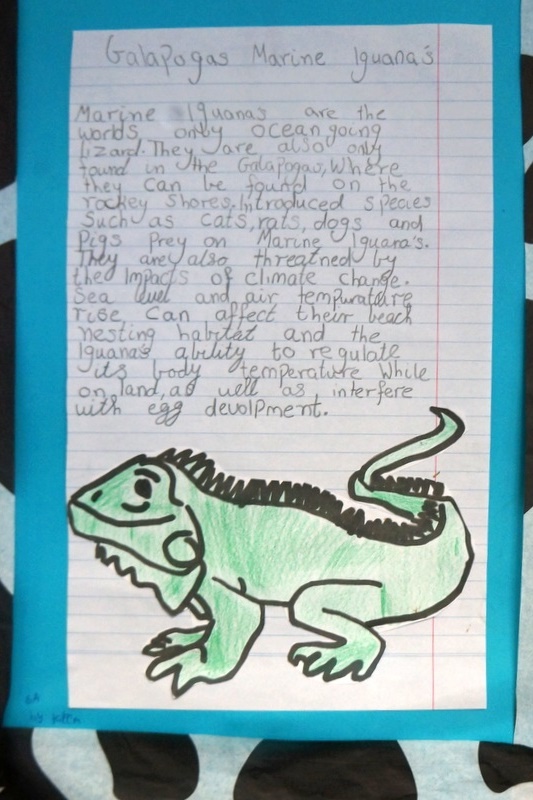 Galapogas Marine Iguana's
Marine Iguanas are the
worlds only ocean going
lizard. They are also only
found in the Galapogas, Where
they can be found on the
rockey shores. Introduced species
Such as cats, rats, dogs and
Pigs Prey on Marine Iguana's.
They are also threatned by
the Impacts of climate change.
Sea level and air tempurature
rise can affect their beach
nesting habitat and the
Iguana's ability to regulate
its body temperature While
on land, as well as interfere
with egg devolpment.
6A
by